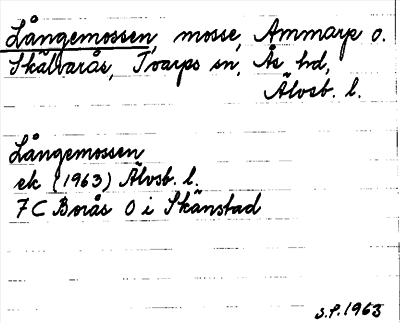 Långemossen, mosse, Ammarp o.
Skälvarås, Toarps sn, Ås hd,
Älvsb. l.
Långemossen
ek (1963) Älvsb. l.
7 C Borås O i Skänstad
S.P. 1963